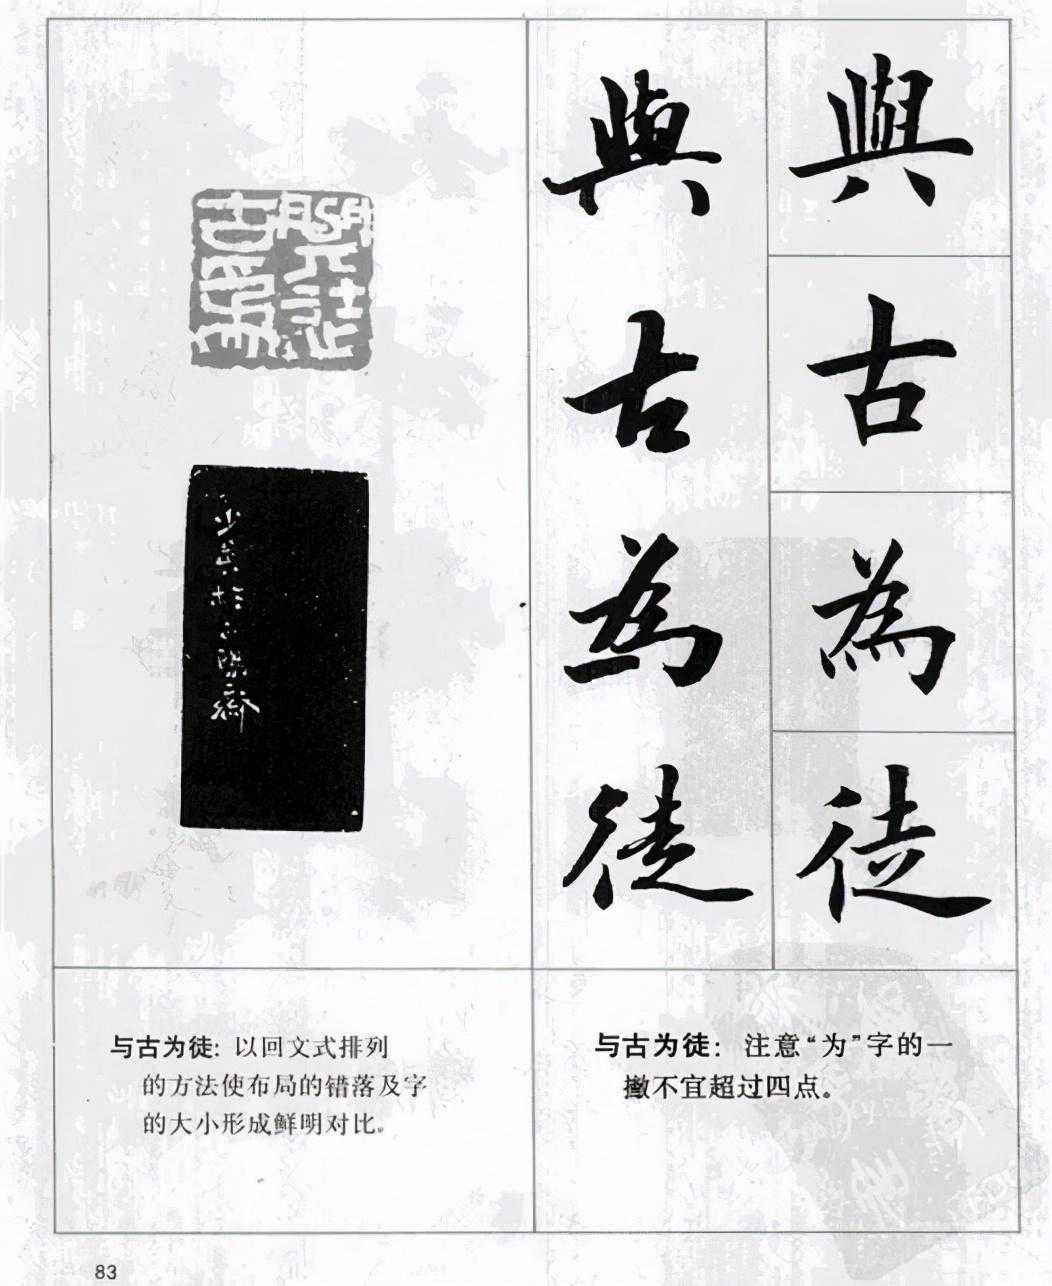 與
古
為
徒
與
古
為
徒
与古为徒：以回文式排列
的方法使布局的错落及字
的大小形成鲜明对比。
与古为徒：注意“为”字的一
撇不宜超过四点。
83